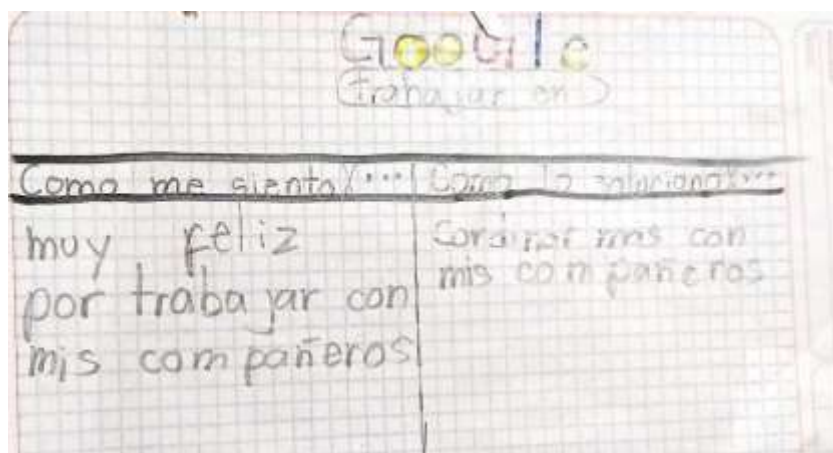 Google
trabajar en
Como me siento...
Como lo soluciono...
muy feliz
por trabajar con
mis compañeros
Cordinar mas con
mis compañeros